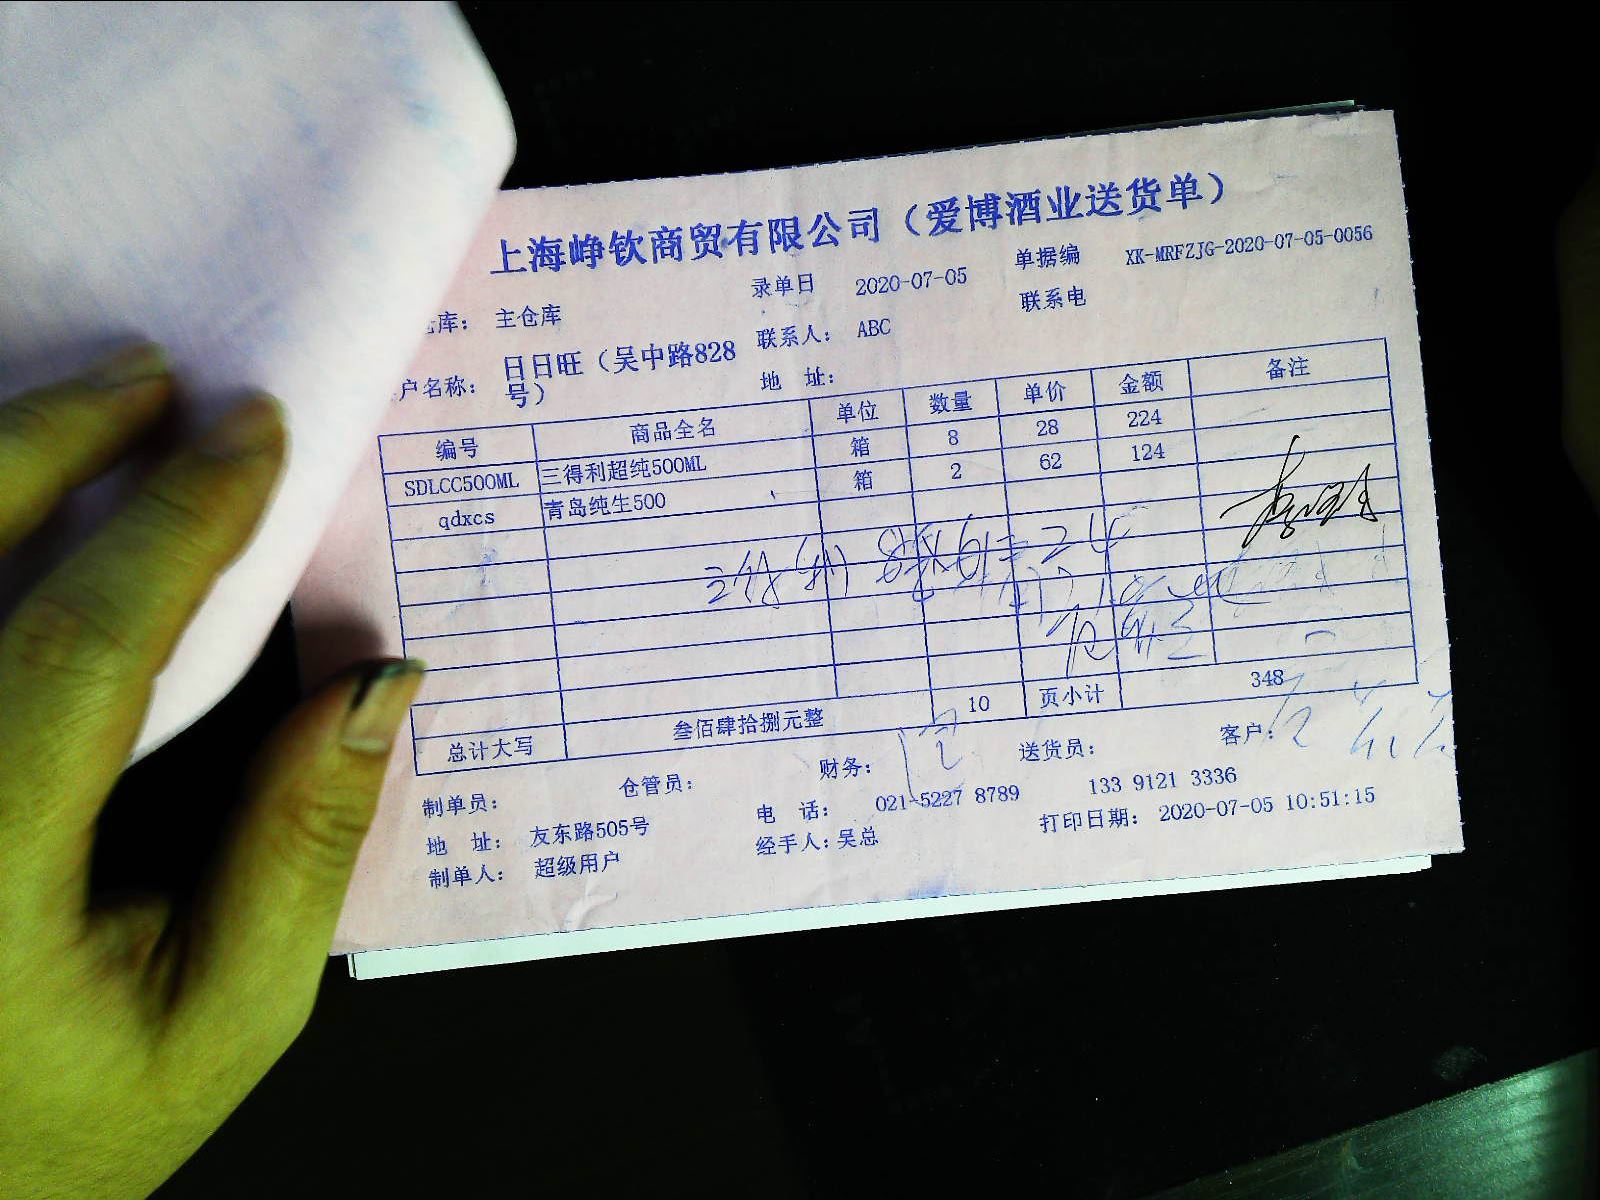 上海峥钦商贸有限公司（爱博酒业送货单）
库： 主仓库 录单日 2020-07-05 单据编 XK-MRFZJG-2020-07-05-0056
户名称： 日日旺（吴中路828号） 联系人： ABC 联系电
地 址：
编号 商品全名 单位 数量 单价 金额 备注
SDLCC500ML 三得利超纯500ML 箱 8 28 224
qdxcs 青岛纯生500 箱 2 62 124
10 页小计 348
总计大写 叁佰肆拾捌元整
制单员： 仓管员： 财务： 送货员： 客户：
地 址： 友东路505号 电 话： 021-5227 8789 133 9121 3336
制单人： 超级用户 经手人：吴总 打印日期： 2020-07-05 10:51:15